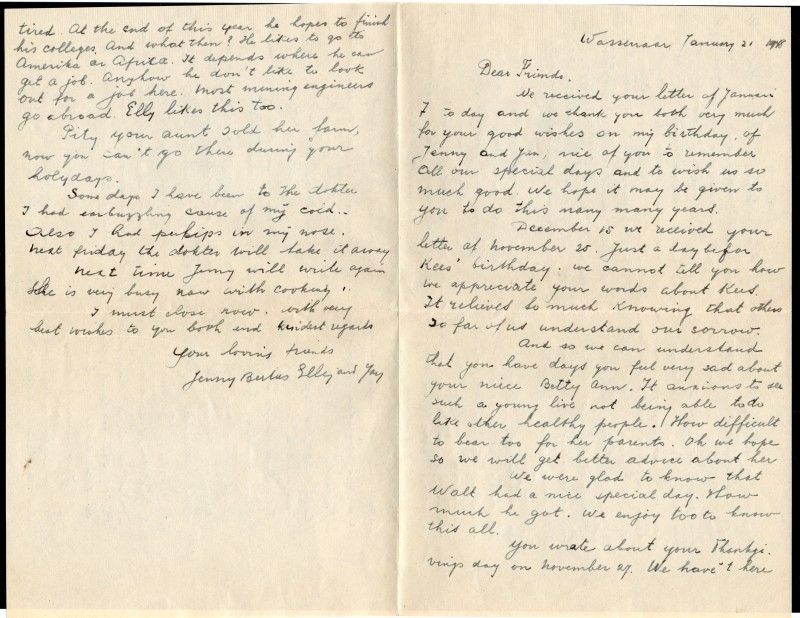 tired. At the end of this year he hopes to finish
his colleges. And what then? He likes to go to
Amerika or Africa. It depends where he can
get a job. Anyhow he don't like to look
out for a job here. Most mining engineers
go abroad. Elly likes this too.
Pity your aunt sold her farm,
now you can't go there during your
holydays.
Some days I have been to the dokter
I had earbuzzling cause of my cold..
Also I had in my nose.
next friday the dokter will take it away
next time Jenny will write again
She is very busy now with cooking.
I must close now. with very
best wishes to you both and kindest regards
Your loving friends
Jenny Bertus Elly and Jay
Wassenaar January 21 1948
Dear Friends.
We received your letter of Januari
7 to day and we thank you both very much
for your good wishes on my birthday, of
Jenny and Jan, nice of you to remember
all our special days and to wish us so
much good. We hope it may be given to
you to do this many many years.
December 15 we received your
letter of November 25. Just a day befor
Kees' birthday. we cannot till you how
we appreciate your words about Kees.
It relieves so much knowing that others
so far of us understand our sorrow.
And so we can understand
that you have days you feel very sad about
your niece Betty Ann. It anxions to see
such a young live not being able to do
like other healthy people. How difficult
to bear too for her parents. Oh we hope
so we will get better advice about her
We were glad to know that
Walt had a nice special day. How
much he got. We enjoy too to know
this all.
You wrate about your Thankgi.
vings day on november 27. We have't here